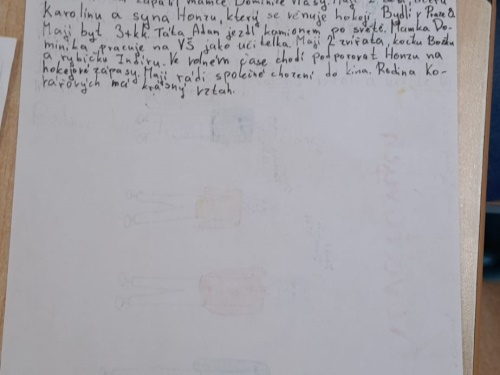 zapálil mamce Dominice vlasy. Mají 2 děti, dceru
Karolínu a syna Honzu, který se věnuje hokeji. Bydlí v Praze 2.
Mají byt 3+kk. Táta Adam jezdí kamionem po světě. Mamka Do-
minika pracuje na VŠ jako učitelka. Mají 2 zvířata, kočku
a rybičku Indiru. Ve volném čase chodí podporovat Honzu na
hokejové zápasy. Mají rádi společné chození do kina. Rodina Ko-
vářových má krásný vztah.